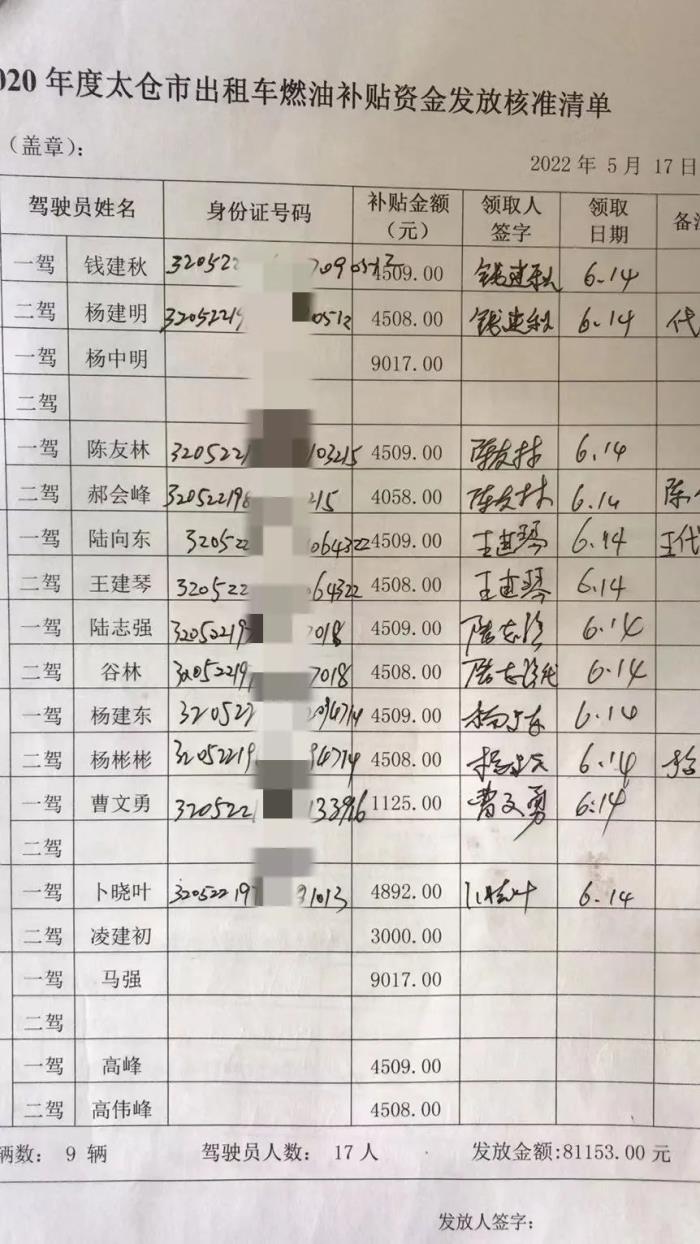 020 年度太仓市出租车燃油补贴资金发放核准清单
（盖章）：
2022 年 5 月 17 日
驾驶员姓名 身份证号码 补贴金额（元） 领取人签字 领取日期 备
一驾 钱建秋 320522 4509.00 钱建秋 6.14
二驾 杨建明 32052219 0512 4508.00 钱建秋 6.14 代
一驾 杨中明 9017.00
二驾
一驾 陈友林 3205221 103215 4509.00 陈友林 6.14
二驾 郝会峰 320522198 215 4058.00 陈友林 6.14 陈
一驾 陆向东 320522 064322 4509.00 王建琴 6.14 王代
二驾 王建琴 320522 064322 4508.00 王建琴 6.14
一驾 陆志强 32052219 7018 4509.00 陆志强 6.14
二驾 谷林 32052219 7018 4508.00 陆志强代 6.14
一驾 杨建东 320522 294714 4509.00 杨建东 6.14
二驾 杨彬彬 32052219 94714 4508.00 杨建东 6.14
一驾 曹文勇 320522 133916 1125.00 曹文勇 6.14
二驾
一驾 卜晓叶 320522197 91013 4892.00 卜晓叶 6.14
二驾 凌建初 3000.00
一驾 马强 9017.00
二驾
一驾 高峰 4509.00
二驾 高伟峰 4508.00
辆数： 9 辆 驾驶员人数： 17 人 发放金额:81153.00 元
发放人签字：